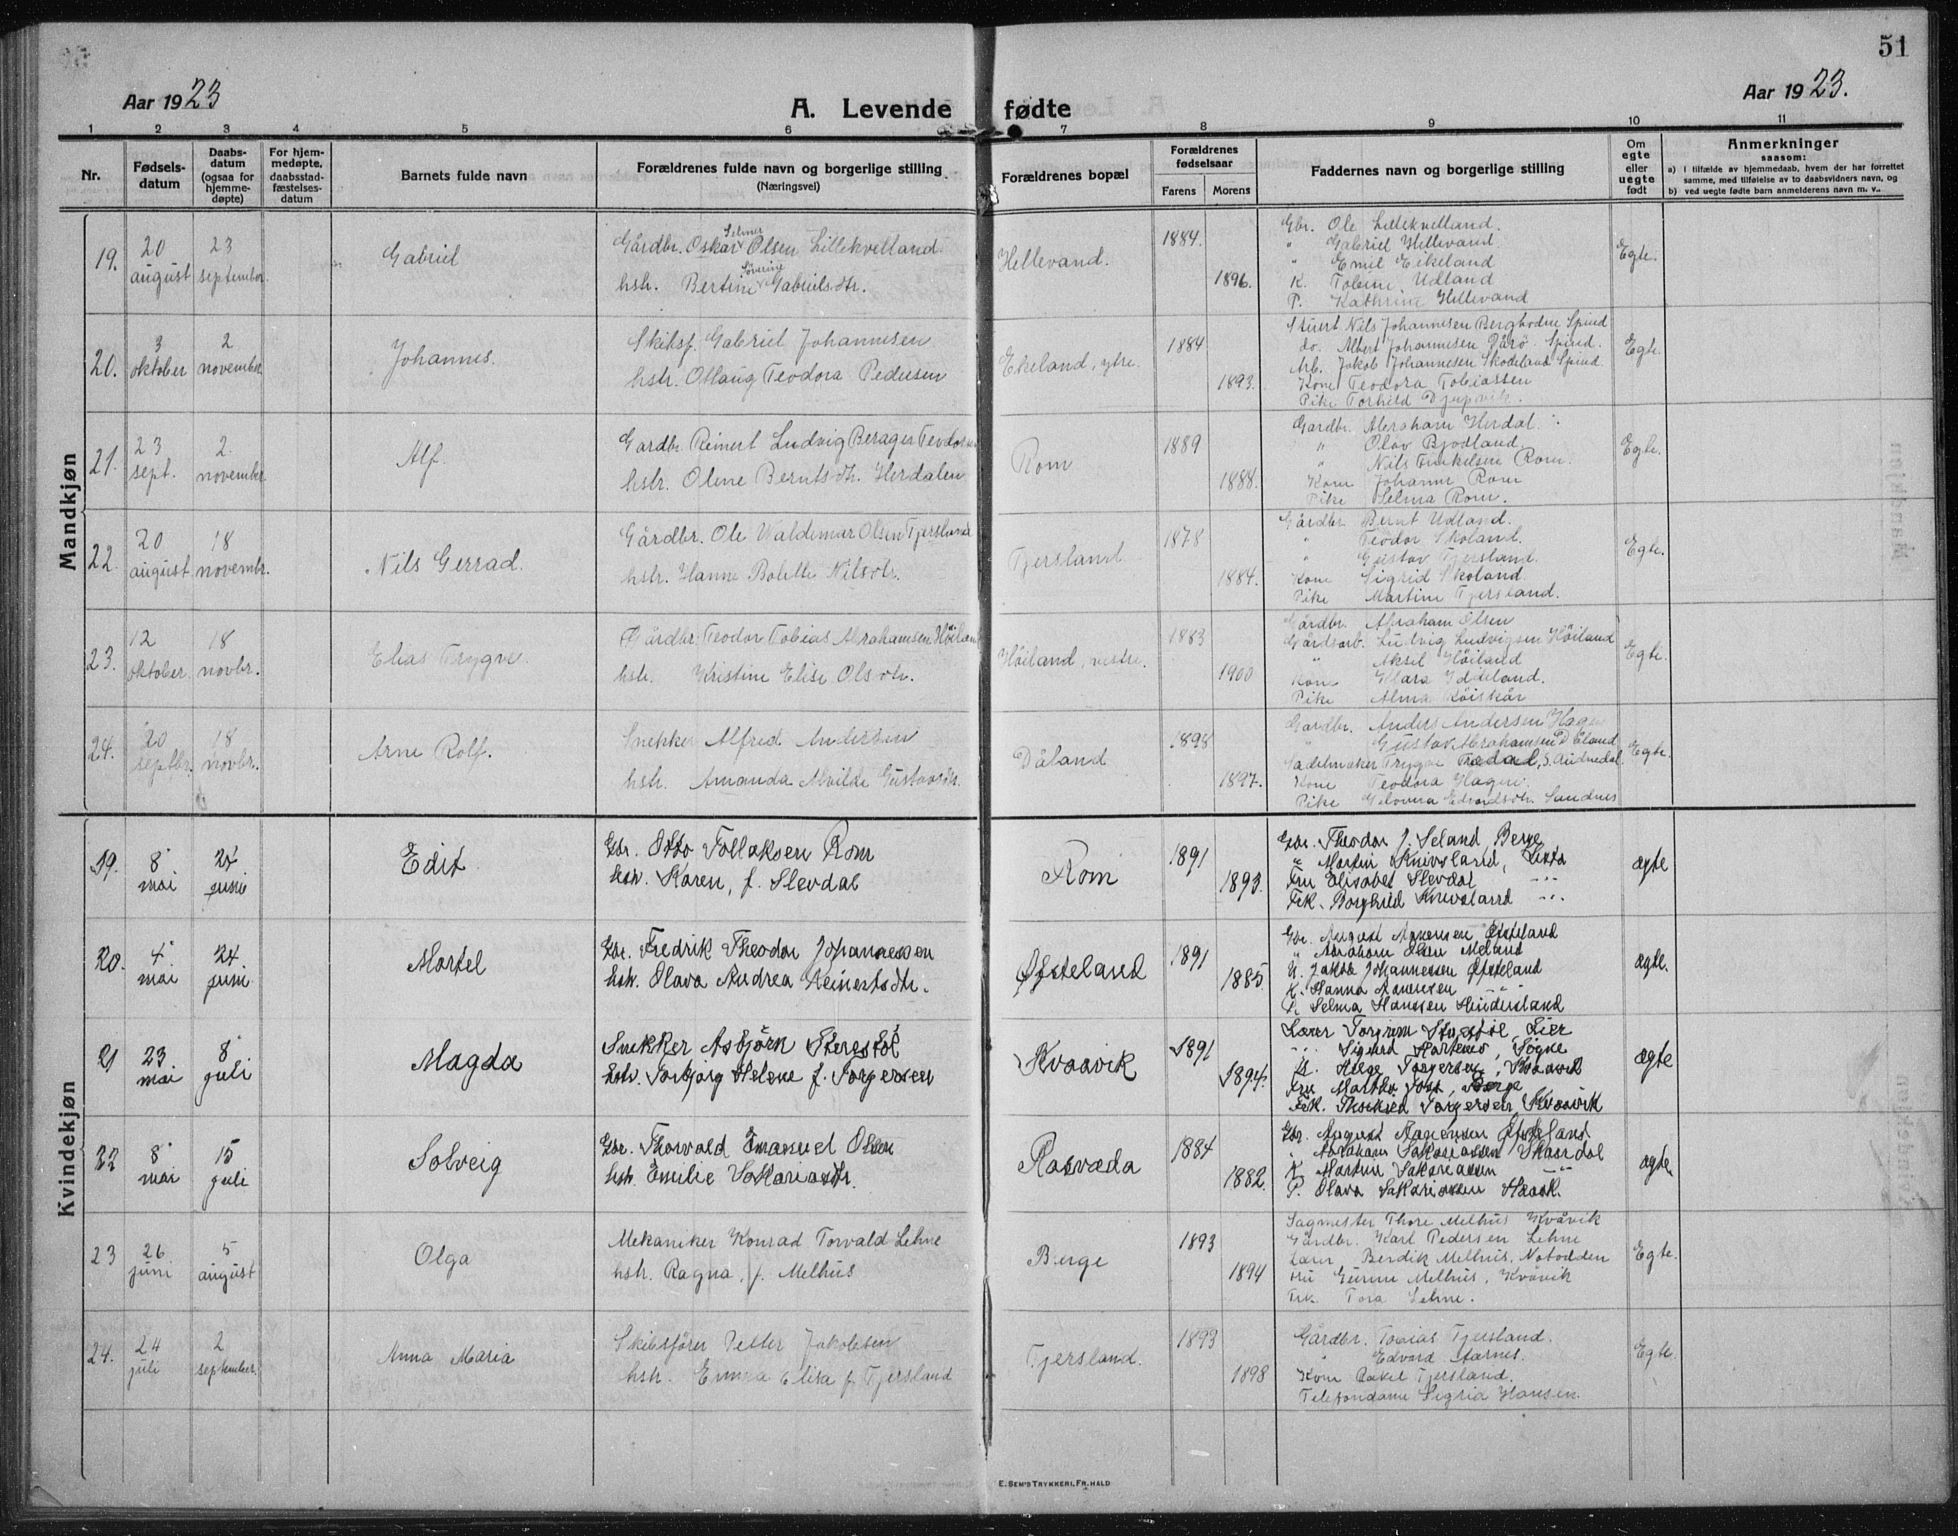 51
Aar 1923
A. Levende fødte
Aar 1923.
1 2 3 4 5 6 7 8 9 10 11
Nr.
Fødselsdatum
Daabsdatum (ogsaa for hjemmedøpte)
For hjemmedøpte, daabsstadfæstelsesdatum
Barnets fulde navn
Forældrenes fulde navn og borgerlige stilling (Næringsvei)
Forældrenes bopæl
Forældrenes fødselsaar
Farens Morens
Faddernes navn og borgerlige stilling
Om egte eller uegte født
Anmerkninger
saasom:
a) I tilfælde av hjemmedaab, hvem der har forrettet samme, med tilføielse av to daabsvidners navn, og
b) ved uegte fødte barn anmelderens navn m. v..
Mandkjøn
19.
20 august
23 september
Gabriel
Gårdbr. Oskar Selmer Olsen Lillekvelland
hstr. Bertine Severine Gabrielsdtr.
Hellevand.
1884.
1896.
Gbr. Ole Lillekvelland.
" Gabriel Hellevand.
" Emil Eikeland
K. Tobine Udland
P. Kathrine Hellevand
Egte.
20.
3 oktober
2 november
Johannes.
Skibsf. Gabriel Johannesen
hstr. Otlaug Teodora Pedersen
Ekeland, ytre.
1884
1893.
Stuert Nils Johannesen Berghodne Spind
do. Albert Johannesen Dårø Spind.
Arb. Jakob Johannesen Skodeland Spind.
Kone Teodora Tobiassen
Pike Torhild Djupvik.
Egte.
21.
23 sept.
2. november
Alf.
Gårdbr. Reinert Ludvig Berager Teodorsen
hstr. Olene Berntsdtr. Herdalen
Rom
1889
1888.
Gardbr. Abraham Herdal.
" Olav Bjodland.
" Nils Terkelsen Rom.
Kone Johanne Rom
Pike Selma Rom.
Egte.
22.
20 august
18 novembr.
Nils Gerrad.
Gårdbr. Ole Waldemar Olsen Tjersland
hstr. Hanne Bolette Nilsdtr.
Tjersland
1878
1884.
Gårdbr. Bernt Udland.
" Teodor Skoland.
" Gustav Tjersland.
Kone Sigrid Skoland.
Pike Martine Tjersland.
Egte.
23.
12 oktober
18 novbr.
Elias Trygve.
Gårdbr. Teodor Tobias Abrahamsen Høiland
hstr. Kristine Elise Olsdtr.
Høiland, vestre.
1883
1900
Gårdbr. Abraham Olsen
Gårdsarb. Ludvig Ludvigsen Høiland
" Aksel Høiland
Kone Klara Ydteland.
Pike Alma Røiskår
Egte.
24.
20 septbr.
18 novbr.
Arne Rolf.
Snekker Alfred Andersen
hstr. Amanda Alvilde Gustavsdtr.
Dåland
1898
1897.
Gardbr. Anders Andersen Hagen
" Gustav Abrahamsen Dåland
Sadelmaker Trygve S. Audnedal.
Kone Teodora Hagen.
Pike Edvardsdtr. Sandnes
Egte.
Kvindekjøn
19.
8' mai
24 juni
Edit
Gbr. Otto Tollaksen Rom
hstr. Karen, f. Slevdal
Rom
1891
1893.
Gbr. Theodor J. Seland, Berge
" Martin Knivsland, Lista
Fru Elisabet Slevdal "
Frk. Borghild Knivsland "
ægte
20.
4' mai
24 juni
Martel
Gbr. Fredrik Theodor Johannesen
hstr. Olava Andrea Reinertsdtr.
Øfsteland
1891
1885.
Gbr. August Aanensen Øfsteland
" Abraham Olsen Meland
U. Jakob Johannessen Øfsteland
K. Hanna Aanensen "
P. Selma Hanssen Hindersland
ægte.
21
23 mai
8' juli
Magda
Snekker Asbjørn Sterestøl
hstr. Torbjørg Helene f. Torgersen
Kvaavik
1891
1894.
Lærer Torgrim Stuestøl, Lier
" Sigurd Hortemo, Søgne
U. Helge Torgersen, Kvaavik
Fru Martha Jobt, Berge
Frk. Torgersen Kvaavik
ægte
22
8' mai
15 juli
Solveig
Gbr. Thorvald Emanuel Olsen
hstr. Emilie Sakariasdtr.
Rosvada
1884
1882.
Gbr. August Aanensen Øfsteland.
" Abraham Sakariassen Skardal
K. Martine Sakariassen "
P. Olava Sakariassen Haaik.
ægte.
23
26 juni
5 august
Olga
Mekaniker Konrad Torvald Lehne
hstr. Ragna, f. Melhus
Berge
1893
1894
Sagmester Thore Melhus Kvåvik
Gårdbr. Karl Pedersen Lehne
Lærer Berdik Melhus, Notodden
Fru Gurine Melhus, Kvåvik
Frk. Tora Lehne.
Egte.
24.
24 juli
2 september
Anna Maria
Skibsfører Petter Jakobsen
hstr. Emma Elise f. Tjersland
Tjersland.
1893
1898
Gårdbr. Tobias Tjersland.
" Edvard Starnes.
Kone Rakel Tjersland.
Telefondame Sigrid Hansen.
Egte.
E. Sem's Trykkeri, Fr.hald